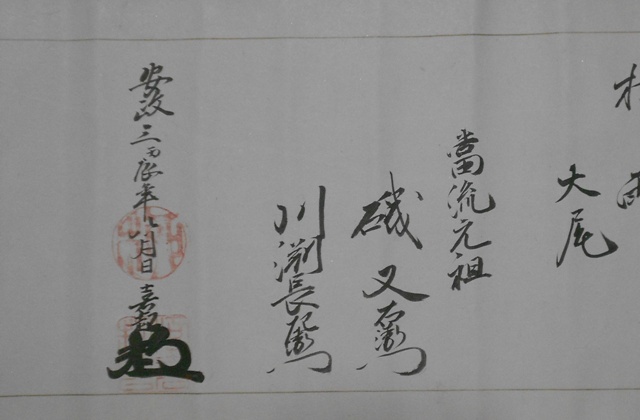 大尾
當流元祖
磯又右衛門
川渕長衛門
安政三丙辰年八月日